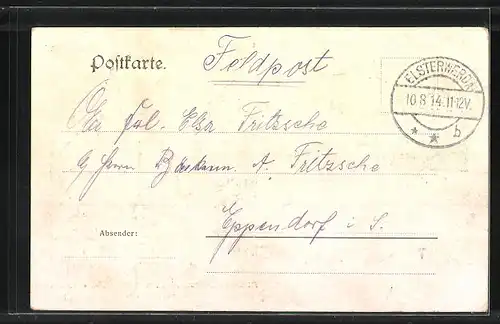 Postkarte.
Feldpost
ELSTERWERDA
10.8.14.11-12V.
* * b
Frl. Elsa Fritzsche
Herrn A. Fritzsche
Eppendorf i. S.
Absender: